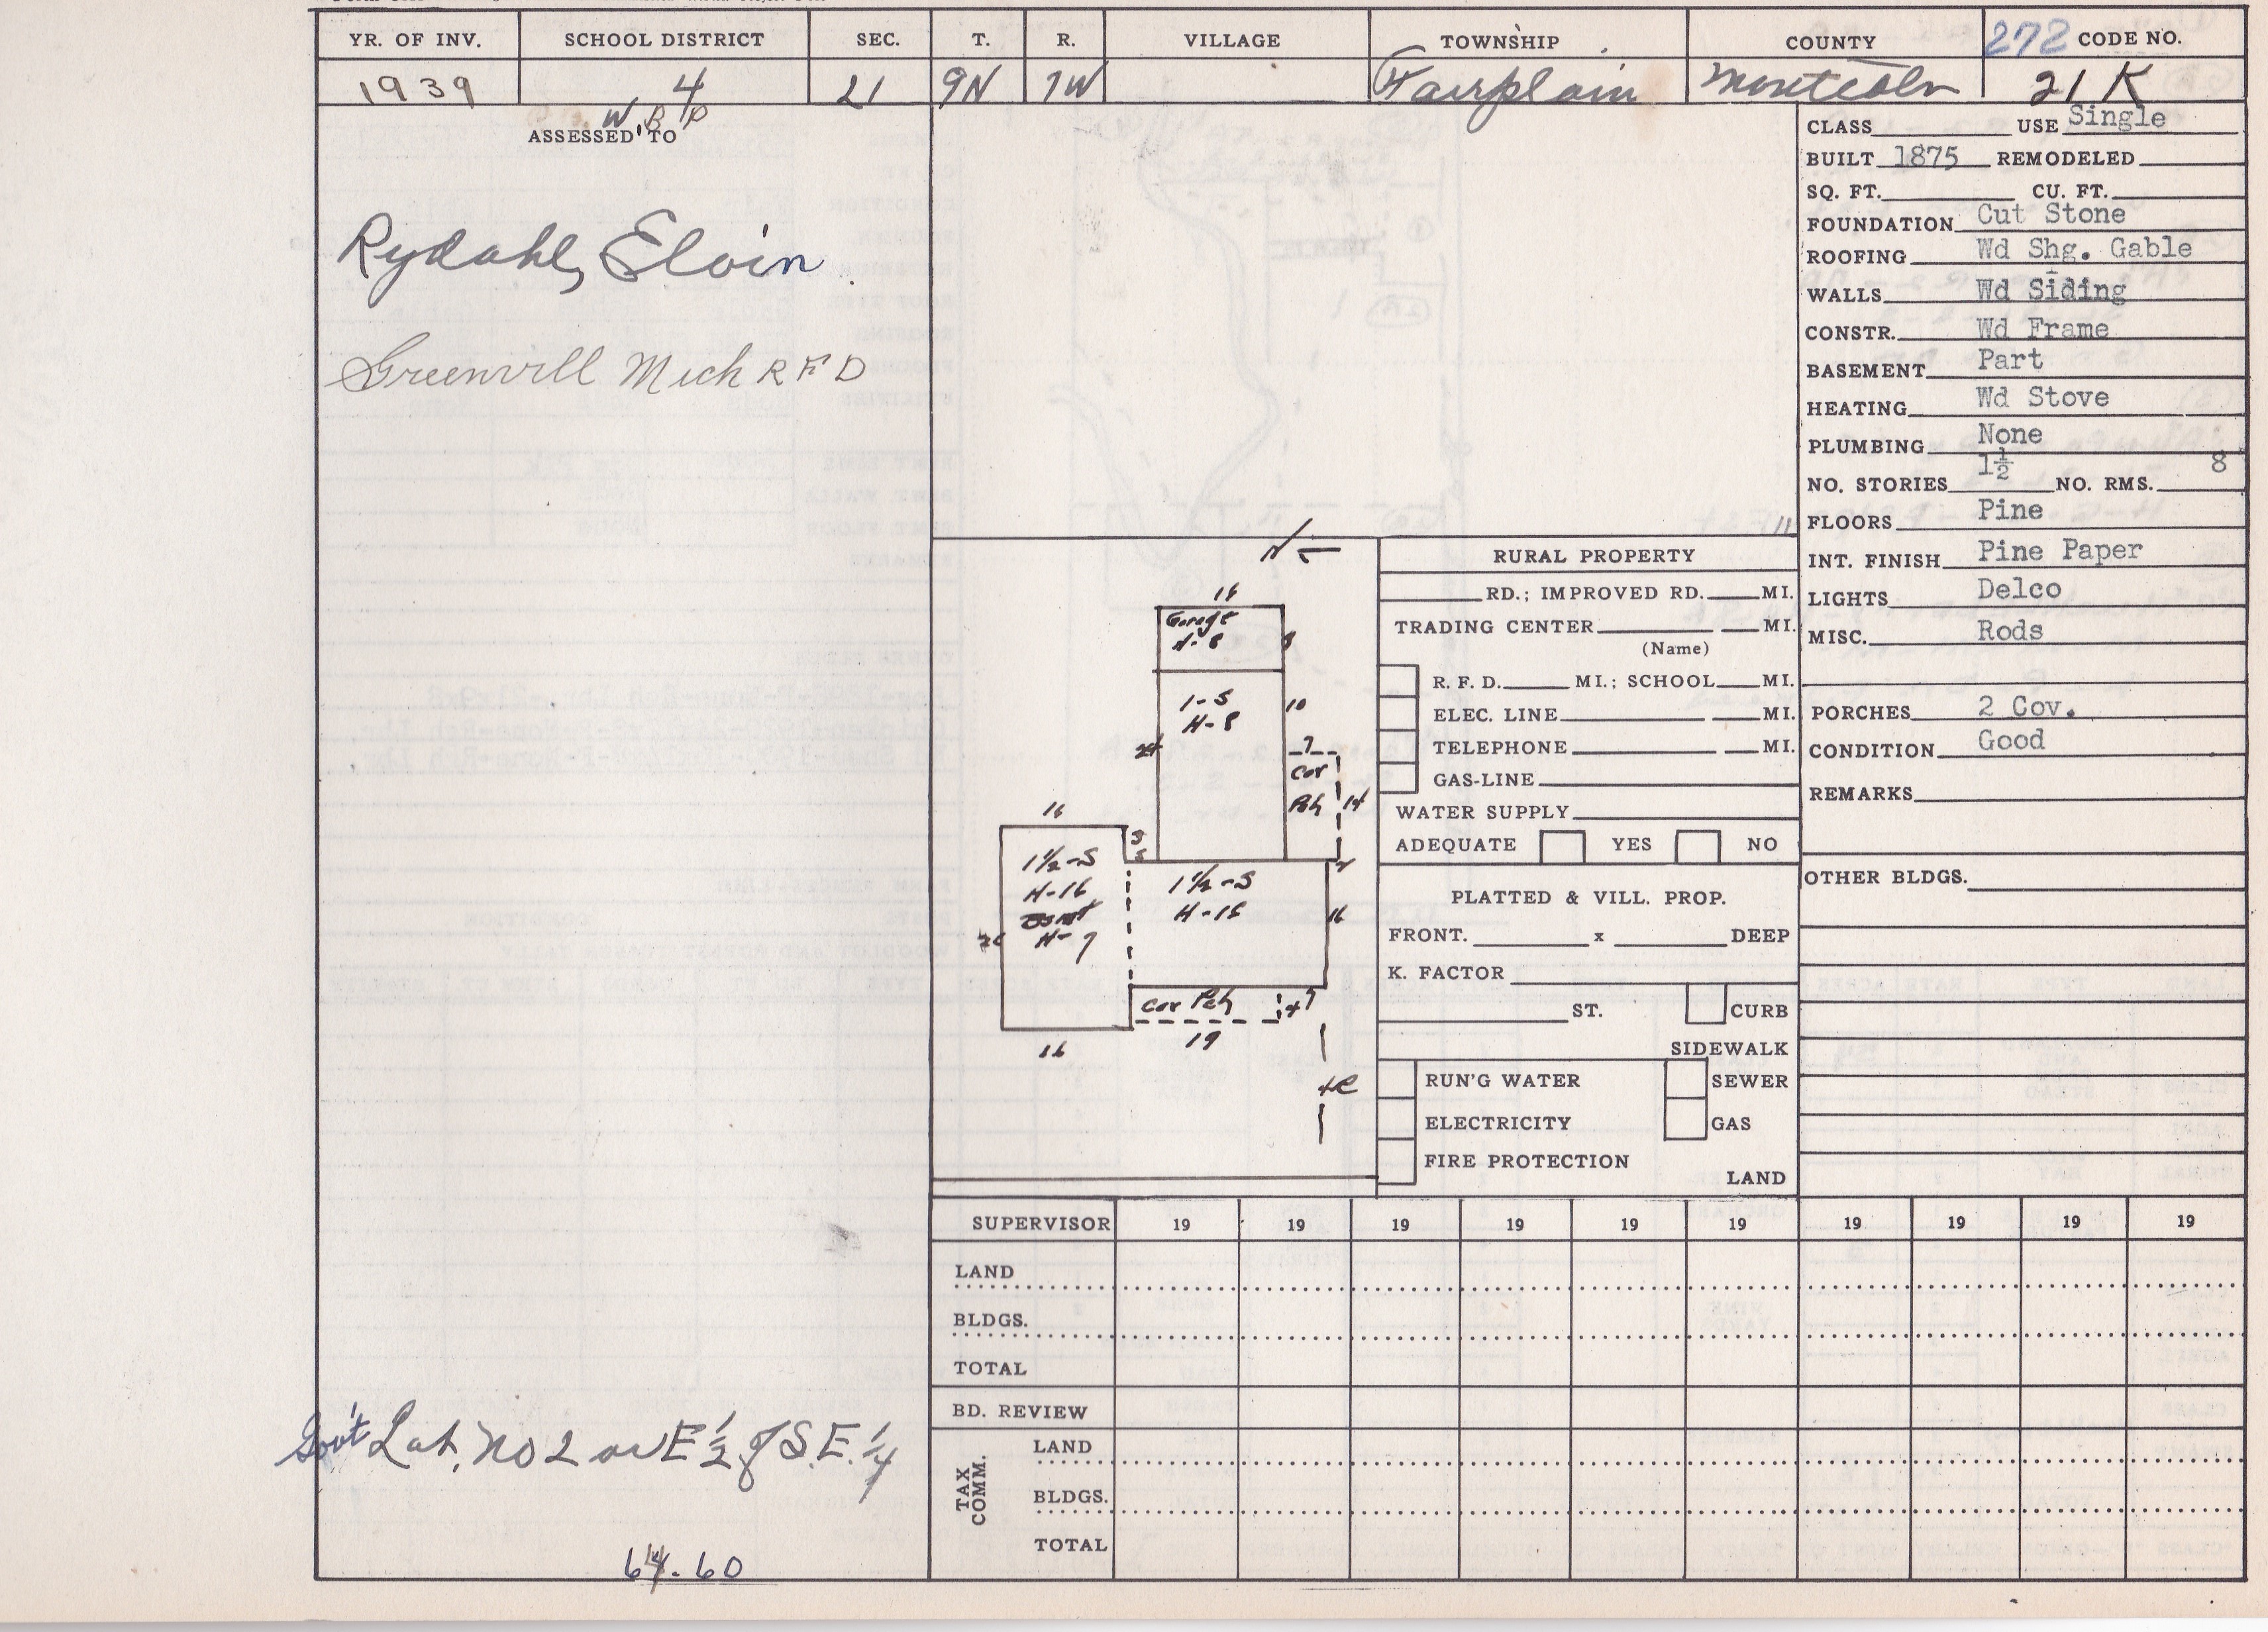 YR. OF INV. SCHOOL DISTRICT SEC. T. R. VILLAGE TOWNSHIP COUNTY 272 CODE NO.
1939 4 21 9N 7W Fairplain Montcalm 21 K
W B P
ASSESSED TO
Rydahl, Elvin
Greenvill Mich R F D
Gov't Lot. No 2 or E ½ of S.E. ¼
64.60
N
16
Garage
H-8
8
1-S
H-8
10
24
7
Cov
Pch
14
16
3
1½-S
H-16
Bsmt
H-7
26
1½-S
H-15
2
16
Cov Pch
4
7
19
16
RURAL PROPERTY
RD.; IMPROVED RD. MI.
TRADING CENTER MI.
(Name)
R. F. D. MI.; SCHOOL MI.
ELEC. LINE MI.
TELEPHONE MI.
GAS-LINE
WATER SUPPLY
ADEQUATE YES NO
PLATTED & VILL. PROP.
FRONT. x DEEP
K. FACTOR
ST. CURB
SIDEWALK
RUN'G WATER SEWER
ELECTRICITY GAS
FIRE PROTECTION
LAND
CLASS USE Single
BUILT 1875 REMODELED
SQ. FT. CU. FT.
FOUNDATION Cut Stone
ROOFING Wd Shg. Gable
WALLS Wd Siding
CONSTR. Wd Frame
BASEMENT Part
HEATING Wd Stove
PLUMBING None
NO. STORIES 1½ NO. RMS. 8
FLOORS Pine
INT. FINISH Pine Paper
LIGHTS Delco
MISC. Rods
PORCHES 2 Cov.
CONDITION Good
REMARKS
OTHER BLDGS.
SUPERVISOR 19 19 19 19 19 19 19 19 19 19
LAND
BLDGS.
TOTAL
BD. REVIEW
TAX COMM.
LAND
BLDGS.
TOTAL